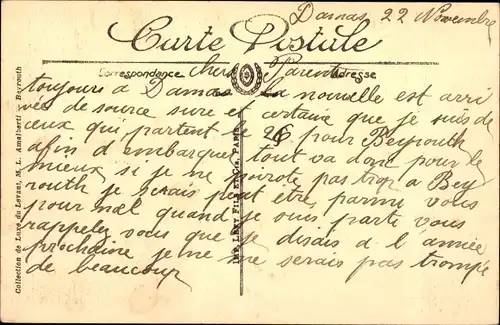 Damas, 22 Novembre
Carte Postale
Correspondance
Adresse
chers Parents
toujours a Damas la nouvelle est arri
vée de source sure et certaine que je suis de
ceux qui partent le 26 pour Beyrouth
afin d'embarquer tout va donc pour le
mieux si je ne pivote pas trop a Bey
routh je serais peut être parmi vous
pour noel quand je suis parti vous
rappelez vous que je disais a l'année
prochaine je ne me serais pas trompé
de beaucoup
Collection de Luxe du Levant, M. L. Amalberti - Beyrouth
IMP. LEVY FILS ET Cie, PARIS